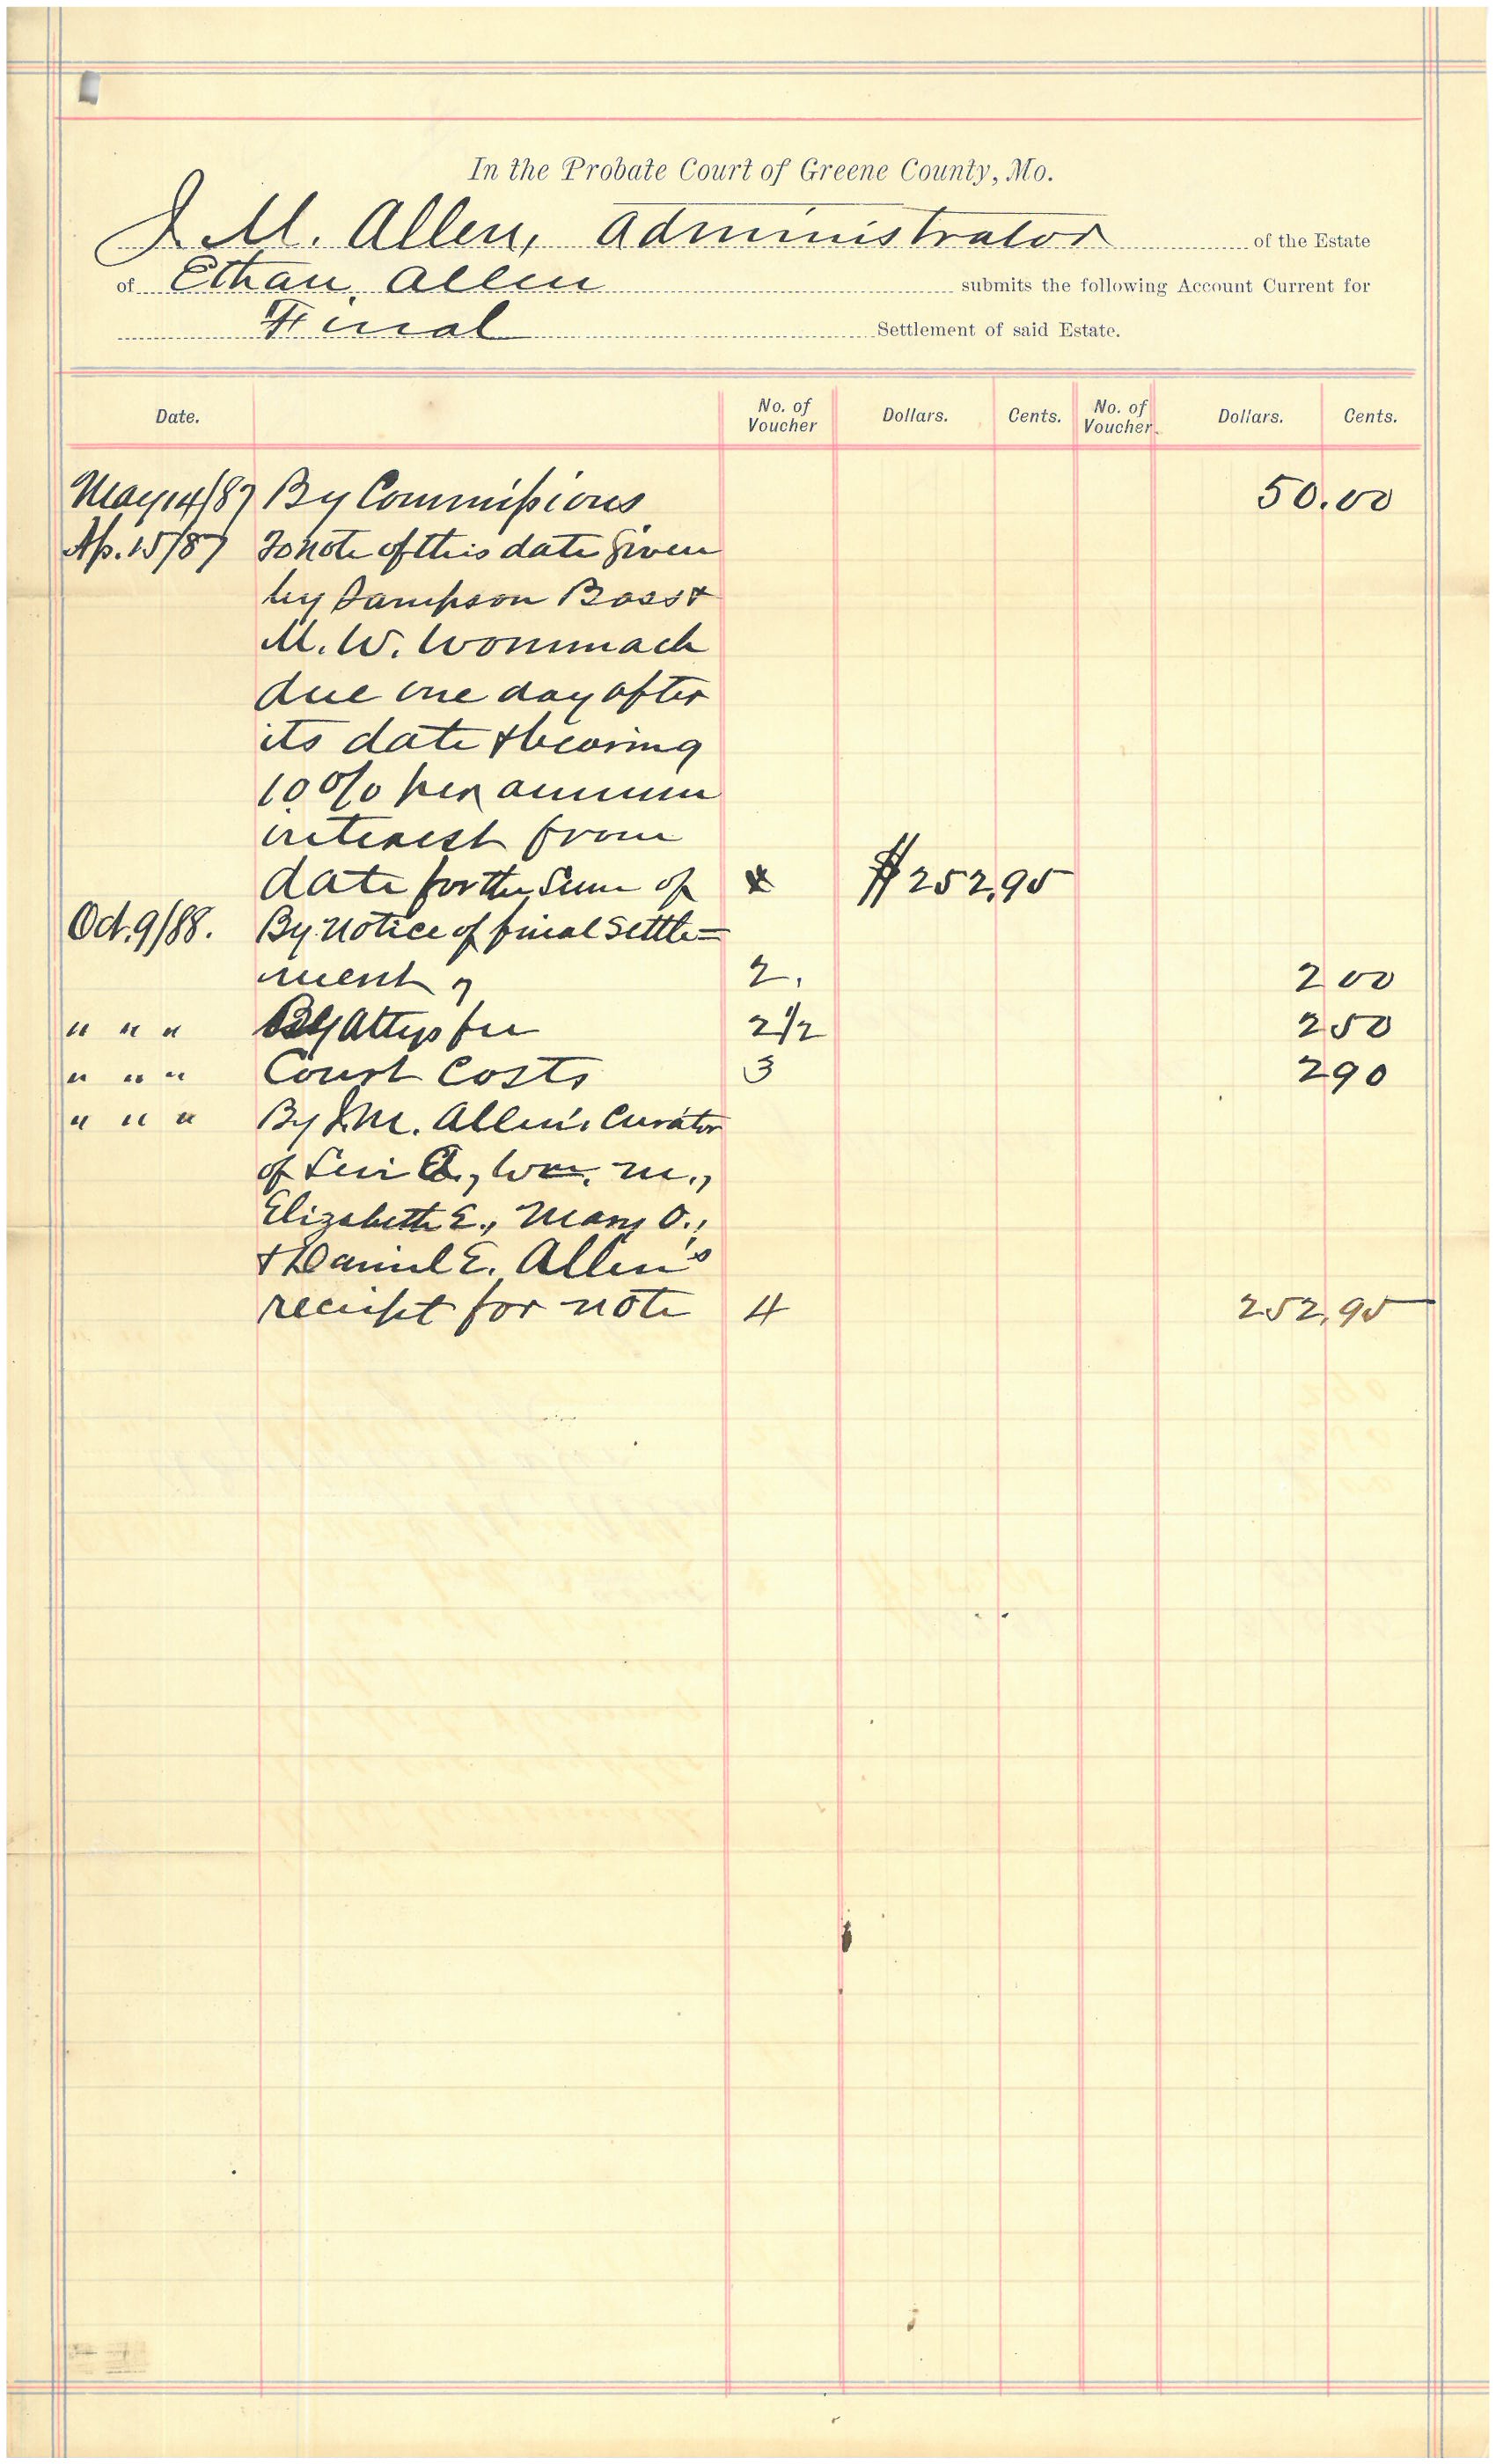 In the Probate Court of Greene County, Mo.
J. M. Allen, Administrator of the Estate
of Ethan Allen submits the following Account Current for
Final Settlement of said Estate.
Date. No. of Voucher Dollars. Cents. No. of Voucher. Dollars. Cents.
May 14/87 By Commissions 50.00
Ap. 15/87 To note of this date given
by Sampson Bass &
M. W. Wommack
due one day after
its date & bearing
10 % per annum
interest from
date for the Sum of $252.95
Oct. 9/88. By notice of final settle=
ment 2. 2 00
" " " By Attys fee 2 1/2 2 50
" " " Court Costs 3 2 90
" " " By J. M. Allen's Curator
of Levi, Wm. M.,
Elizabeth E., Mary O.,
& Daniel E. Allen's
receipt for note 4 252.95